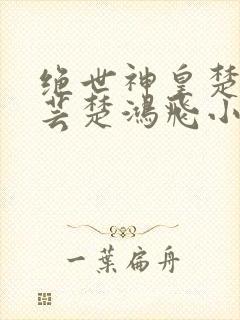 绝世神皇楚
芸楚鸿飞小
一葉扁舟